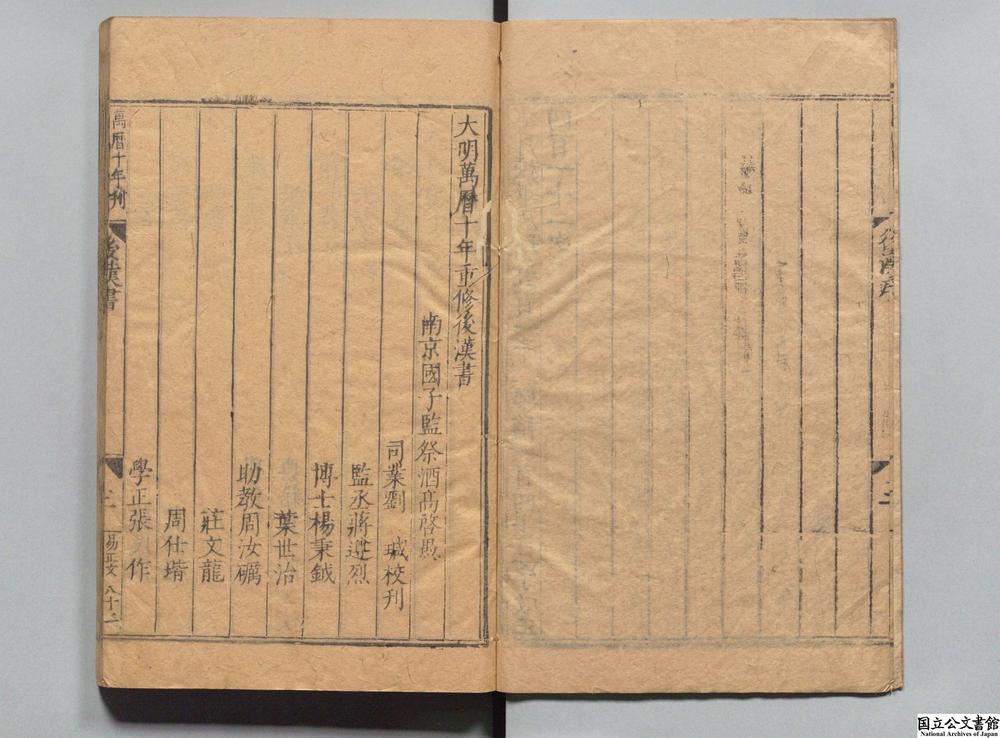 大明萬曆十年重修後漢書
南京國子監祭酒高啓愚
司業劉 瑊校刊
監丞蔣遵烈
博士楊秉鉞
葉世治
助教周汝礪
莊文龍
周仕堦
學正張 作
萬曆十年刊
後漢書
易正文 八十二
国立公文書館
National Archives of Japan